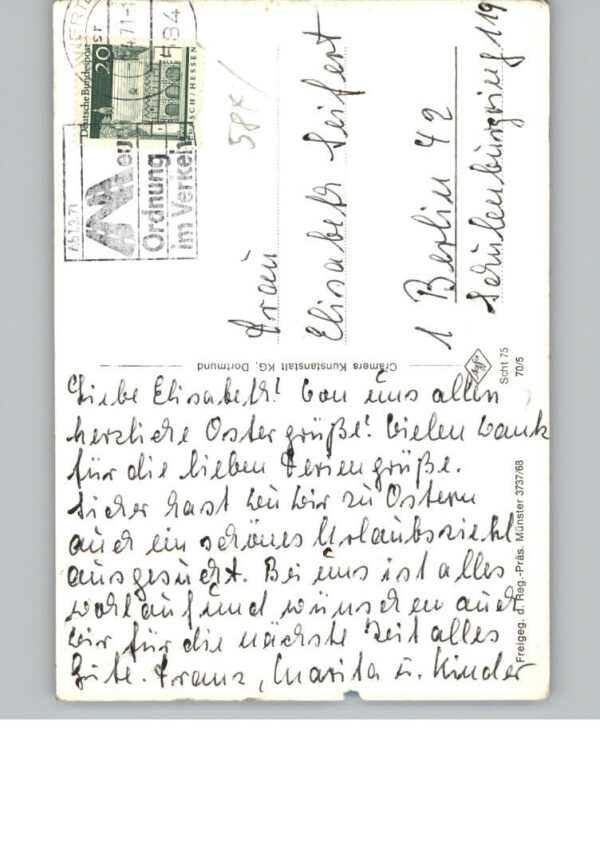 Liebe Elisabeth! Von uns allen
herzliche Ostergrüße! Vielen Dank
für die lieben Feriengrüße.
Sicher hast Du Dir zu Ostern
auch ein schönes Urlaubsziehl
ausgesucht. Bei uns ist alles
wohlauf und wünschen auch
Dir für die nächste Zeit alles
Gute. Franz, Marita u. Kinder
Frau
Elisabeth Seifert
1 Berlin 42
Schulenburgring 119
Deutsche Bundespost
20
LORSCH/HESSEN
584
71-1
Ab 1.3.71
Neue
Ordnung
im Verkehr
584/
Crämers Kunstanstalt KG, Dortmund
Agfa
Scht 75
70/5
Freigeg. d. Reg.-Präs. Münster 3737/68